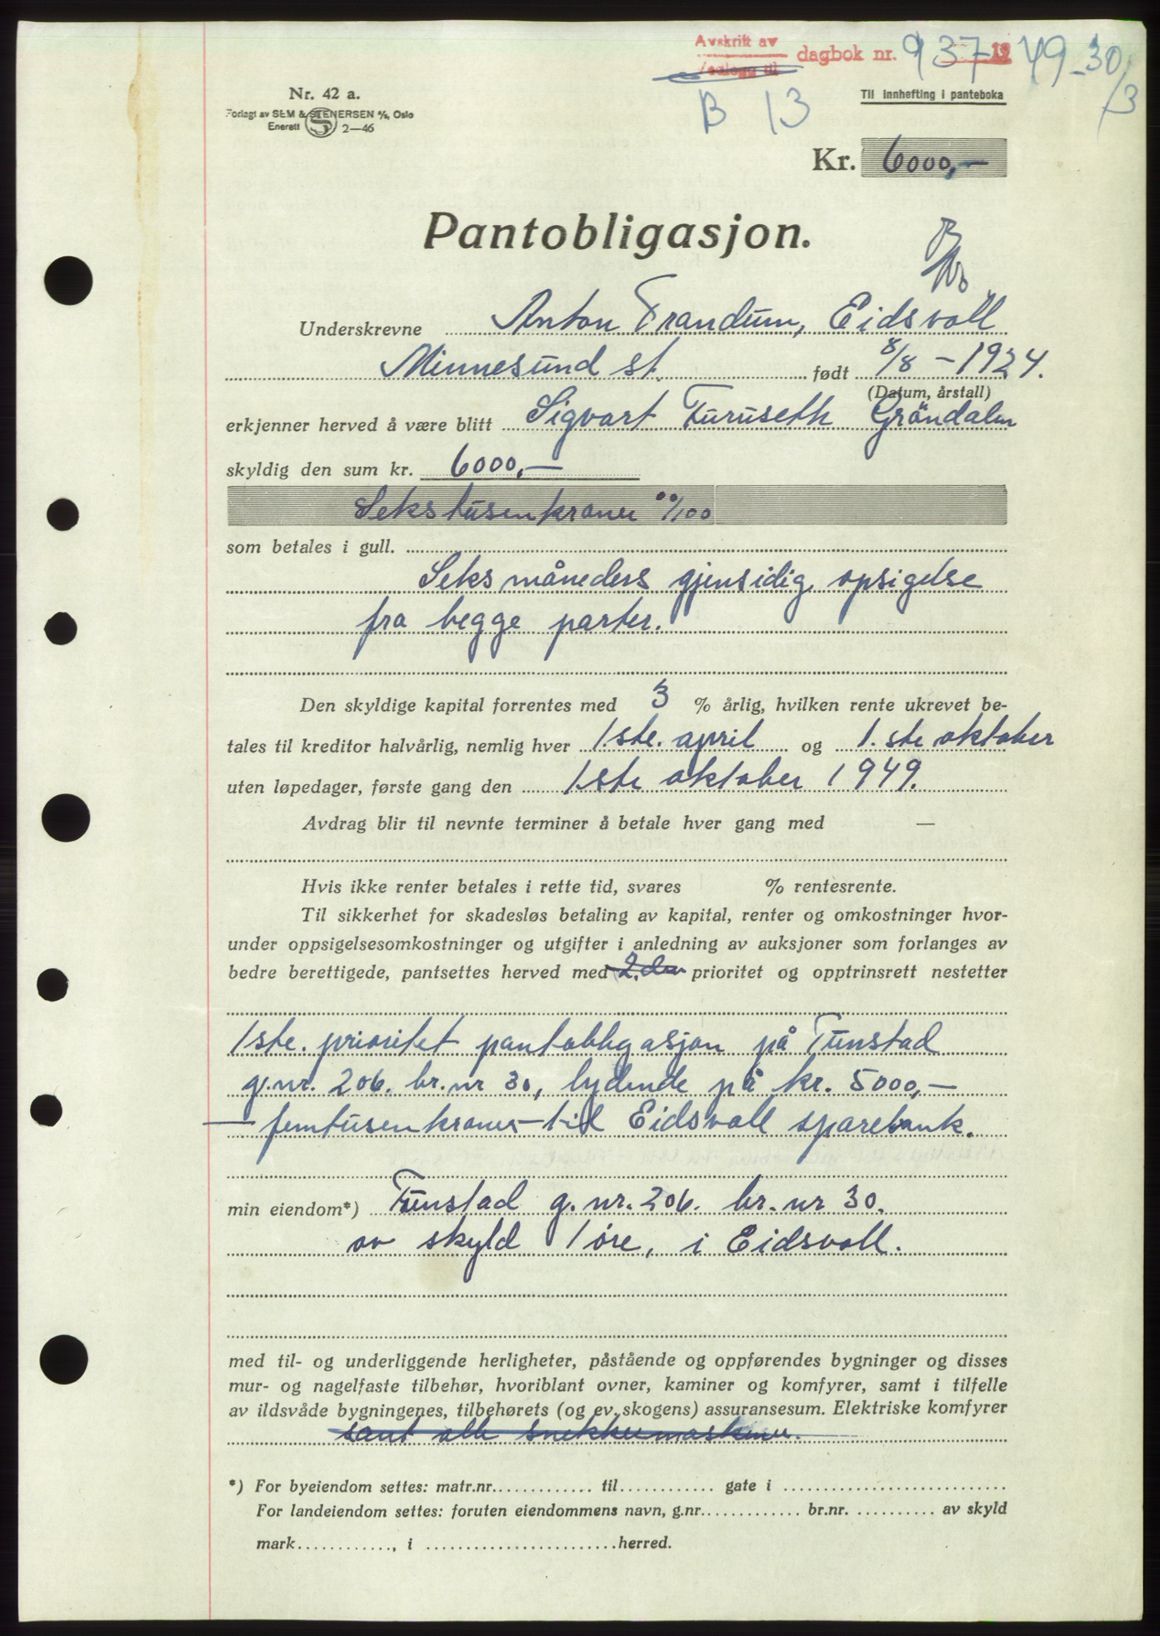 Avskrift av
dagbok nr. 937 1949 - 30/3
Til innhefting i panteboka
B 13
Nr. 42 a.
Forlagt av SEM & STENERSEN A/S, Oslo
Enerett S 2—46
Kr. 6000,—
Pantobligasjon.
Underskrevne Anton Trandum, Eidsvoll
Minnesund st. født 8/8 - 1924.
(Datum, årstall)
erkjenner herved å være blitt Sigvart Furuseth Gröndalen
skyldig den sum kr. 6000,—
Sekstusenkroner 00/100
som betales i gull.
Seks måneders gjensidig opsigelse
fra begge parter.
Den skyldige kapital forrentes med 3 % årlig, hvilken rente ukrevet be-
tales til kreditor halvårlig, nemlig hver 1.ste. april og 1.ste oktober
uten løpedager, første gang den 1.ste oktober 1949.
Avdrag blir til nevnte terminer å betale hver gang med —
Hvis ikke renter betales i rette tid, svares % rentesrente.
Til sikkerhet for skadesløs betaling av kapital, renter og omkostninger hvor-
under oppsigelsesomkostninger og utgifter i anledning av auksjoner som forlanges av
bedre berettigede, pantsettes herved med 2.den prioritet og opptrinsrett nestetter
1ste. prioritet pantobligasjon på Tunstad
g.nr. 206. br.nr 30, lydende på kr. 5000,—
— femtusenkroner — til Eidsvoll sparebank.
min eiendom*) Tunstad g.nr. 206. br.nr 30.
av skyld 1 øre, i Eidsvoll.
med til- og underliggende herligheter, påstående og oppførendes bygninger og disses
mur- og nagelfaste tilbehør, hvoriblant ovner, kaminer og komfyrer, samt i tilfelle
av ildsvåde bygningenes, tilbehørets (og ev. skogens) assuransesum. Elektriske komfyrer
samt alle snekkermaskiner.
*) For byeiendom settes: matr.nr. til gate i
For landeiendom settes: foruten eiendommens navn, g.nr. br.nr. av skyld
mark , i herred.